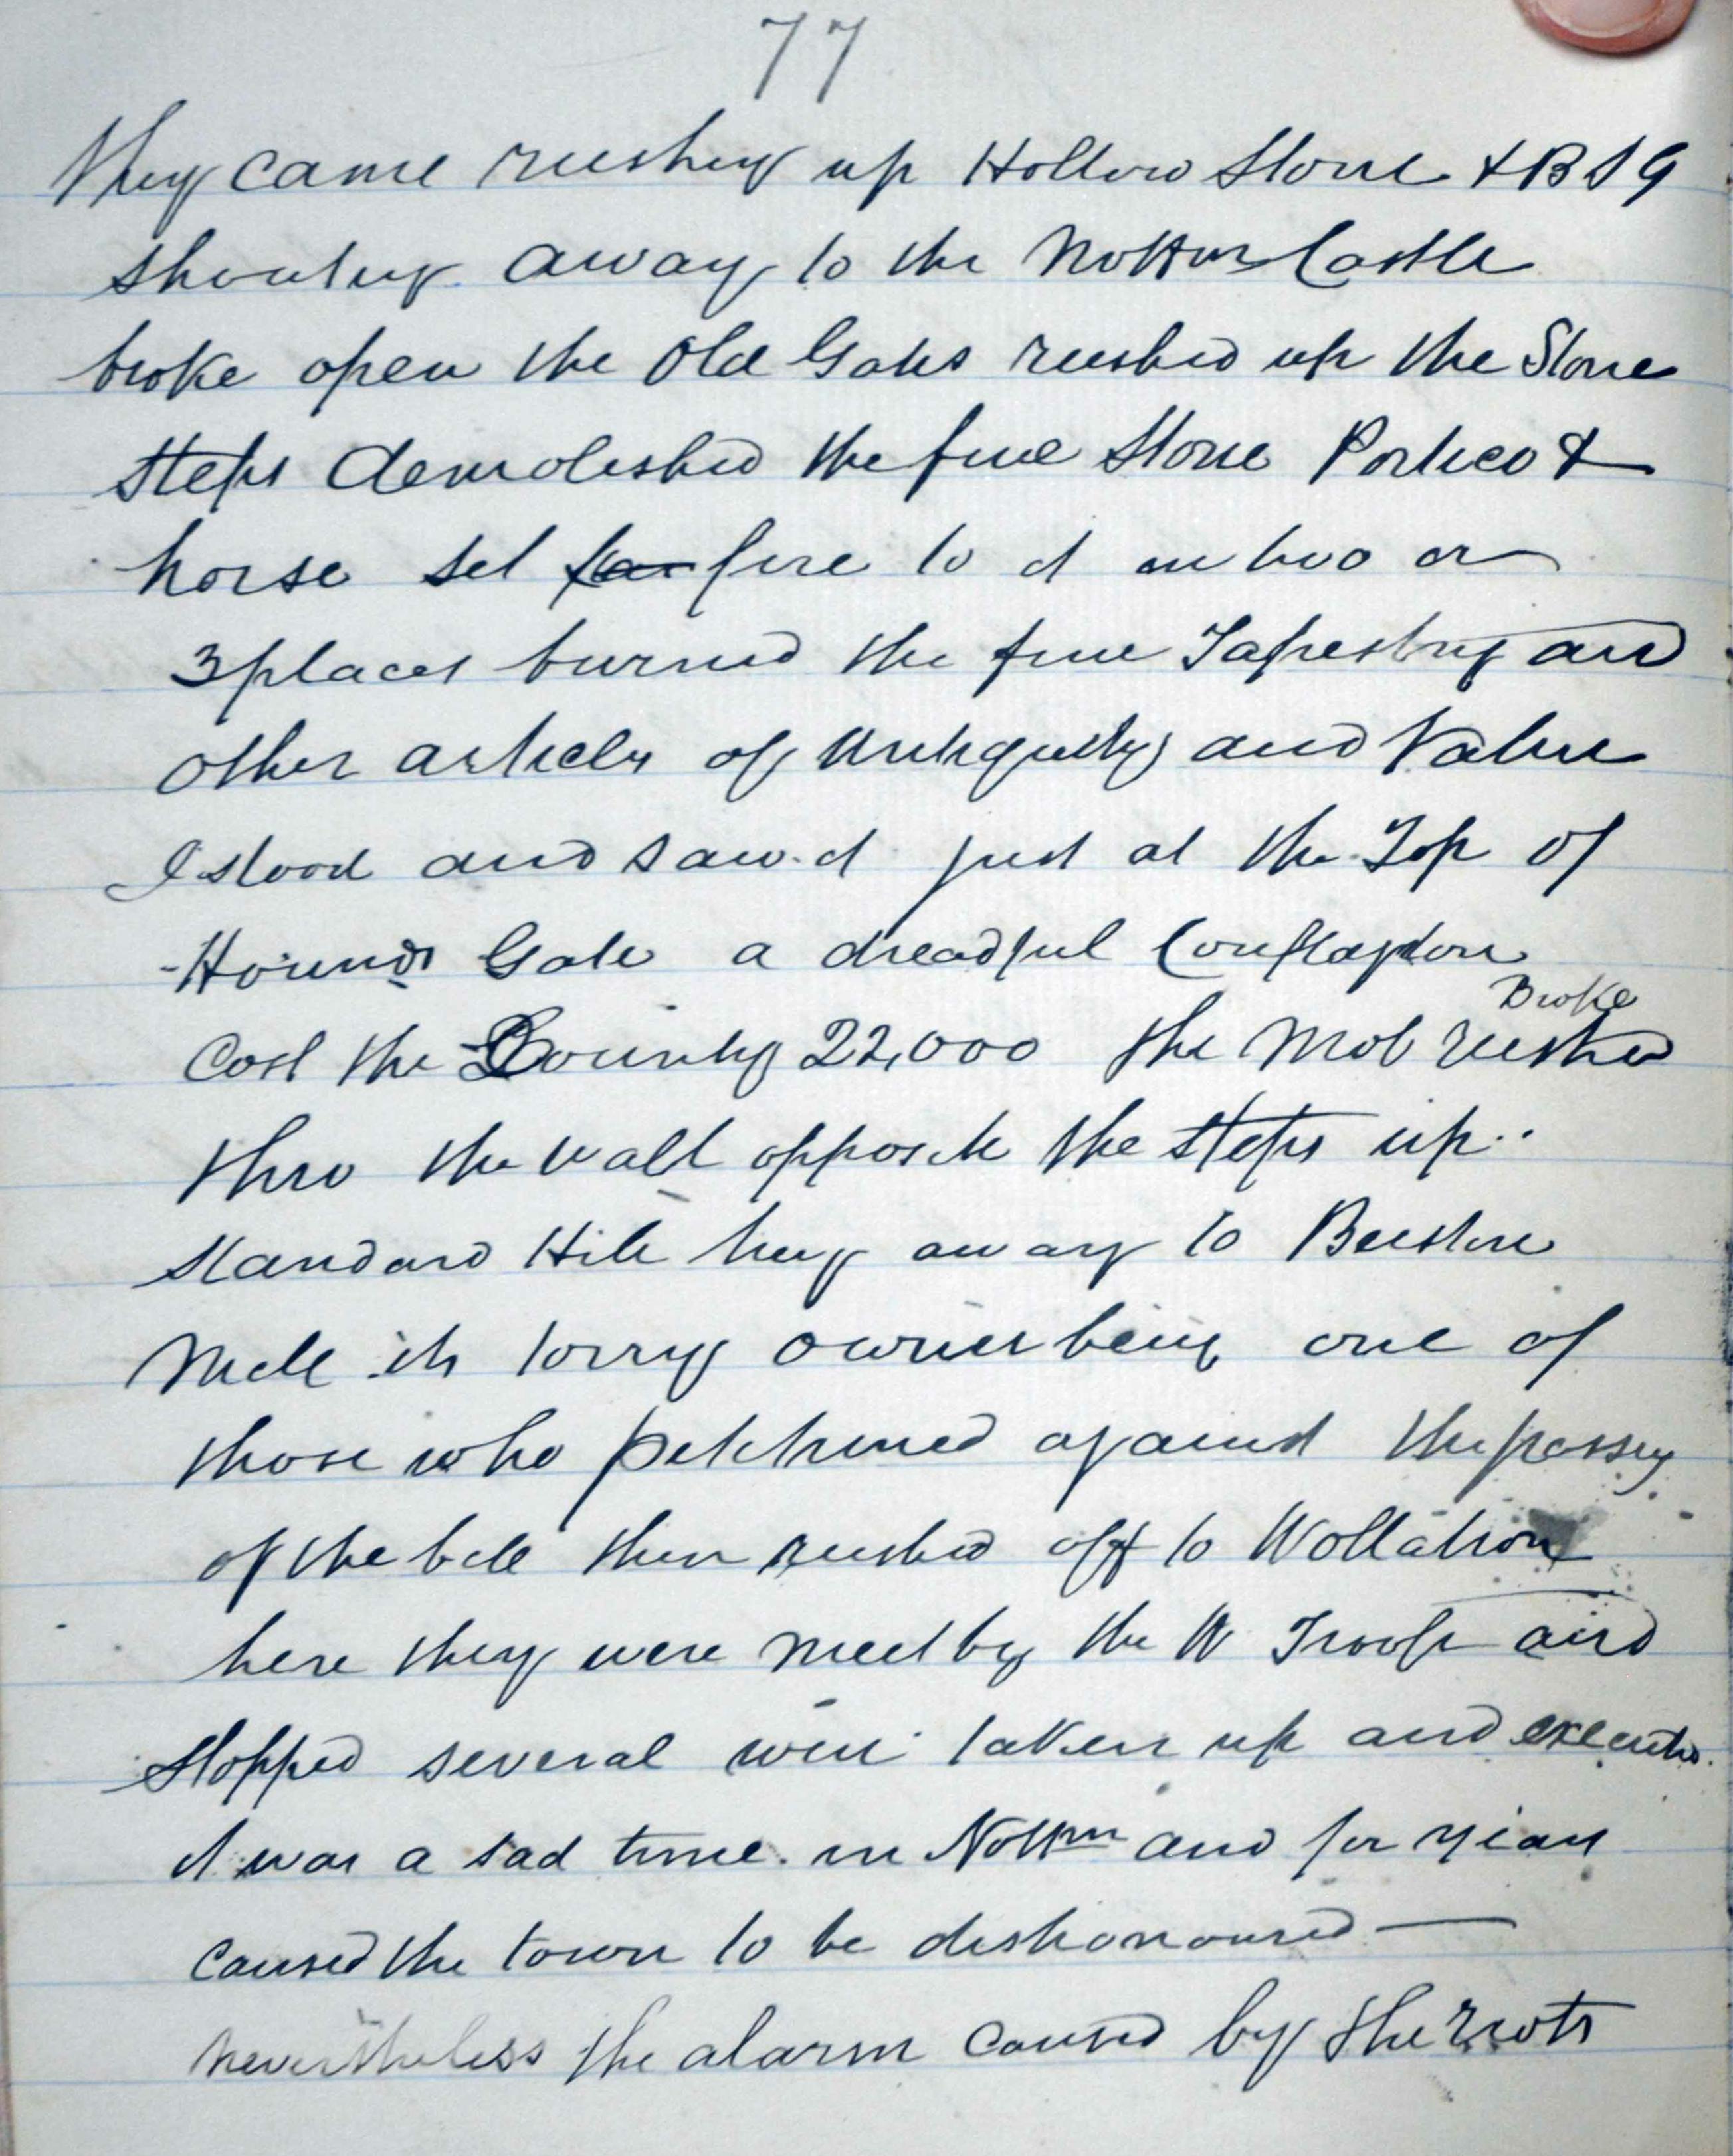 77
They came rushing up Hollow Stone & B S G
shouting away to the Nottm Castle
broke open the Old Gates rushed up the Stone
steps demolished the fine Stone Portico &
horse set fire to it in two or
3 places burned the fine Tapestry and
other articles of Antiquity and Value
I stood and saw it just at the Top of
Hounds Gate a dreadful Conflagration
Broke
Cost the County 22,000 the Mob rushed
thro the wall opposite the steps up
Standard Hill hey away to Beeston
Mill its torry owner being one of
those who petitioned against the passing
of the bill then rushed off to Wollaton
here they were meet by the W Troop and
stopped several were taken up and executed.
it was a sad time in Nottm and for years
caused the town to be dishonoured —
nevertheless the alarm caused by the riots